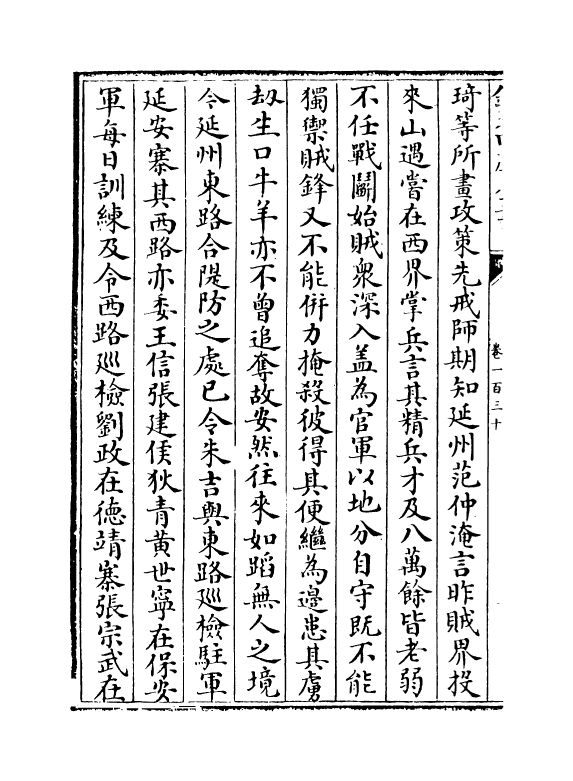 卷一百三十
琦等所畫攻策先戒師期知延州范仲淹言昨賊界投
來山遇嘗在西界掌兵言其精兵才及八萬餘皆老弱
不任戰鬭始賊衆深入盖為官軍以地分自守既不能
獨禦賊鋒又不能併力掩殺彼得其便繼為邊患其虜
刼生口牛羊亦不曾追奪故安然往來如蹈無人之境
今延州東路合隄防之處已令朱吉與東路廵檢駐軍
延安寨其西路亦委王信張建侯狄青黄世寧在保安
軍每日訓練及令西路廵檢劉政在德靖寨張宗武在